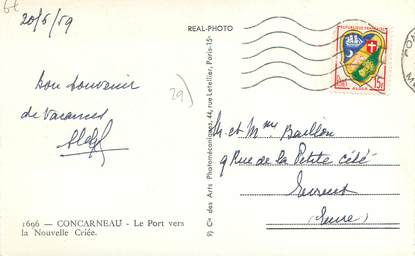 6t
20/5/59
REAL-PHOTO
RÉPUBLIQUE FRANÇAISE
ALGER
15F
bon souvenir
de vacances
29)
9) Cie des Arts Photomécaniques, 44, rue Letellier, Paris-15e
M. et Mme Baillon
9 Rue de la Petite cité
Evreux
(Eure)
1696 — CONCARNEAU - Le Port vers
la Nouvelle Criée.